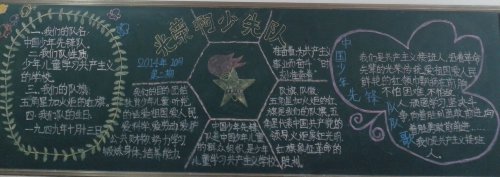 光荣的少先队
一.我们的队名:
中国少年先锋队
二.我们队是
少年儿童学习共产主义
的学校.
三.我们的队旗
五角星加火炬的红旗.
四.我们队的生日.
一九四九年十月十三日
2014年10月
第二期
准备着为共产主义
事业而奋斗"时
刻准备着"
我们的目的团结
教育少年儿童听党
的话爱祖国爱人民
爱科学爱劳动爱护
公共财物努力学习
锻炼身体培养能力
中国少年先锋
队是中国少年儿童
的群众组织是少年
儿童学习共产主义学校
队旗,队徽
五星加火炬的红
旗是我们的队旗.五
角星代表中国共产党的
领导火炬象征光明
红旗象征革命的
胜利.
中国少年先锋队队歌
我们是共产主义接班人.继承革命
先辈的光荣传统,爱祖国爱人民
不怕困难不怕敌
人顽强学习坚决斗
争向着胜利勇敢前进,向
着胜利勇敢前进……
我们是共产主义接班
人.